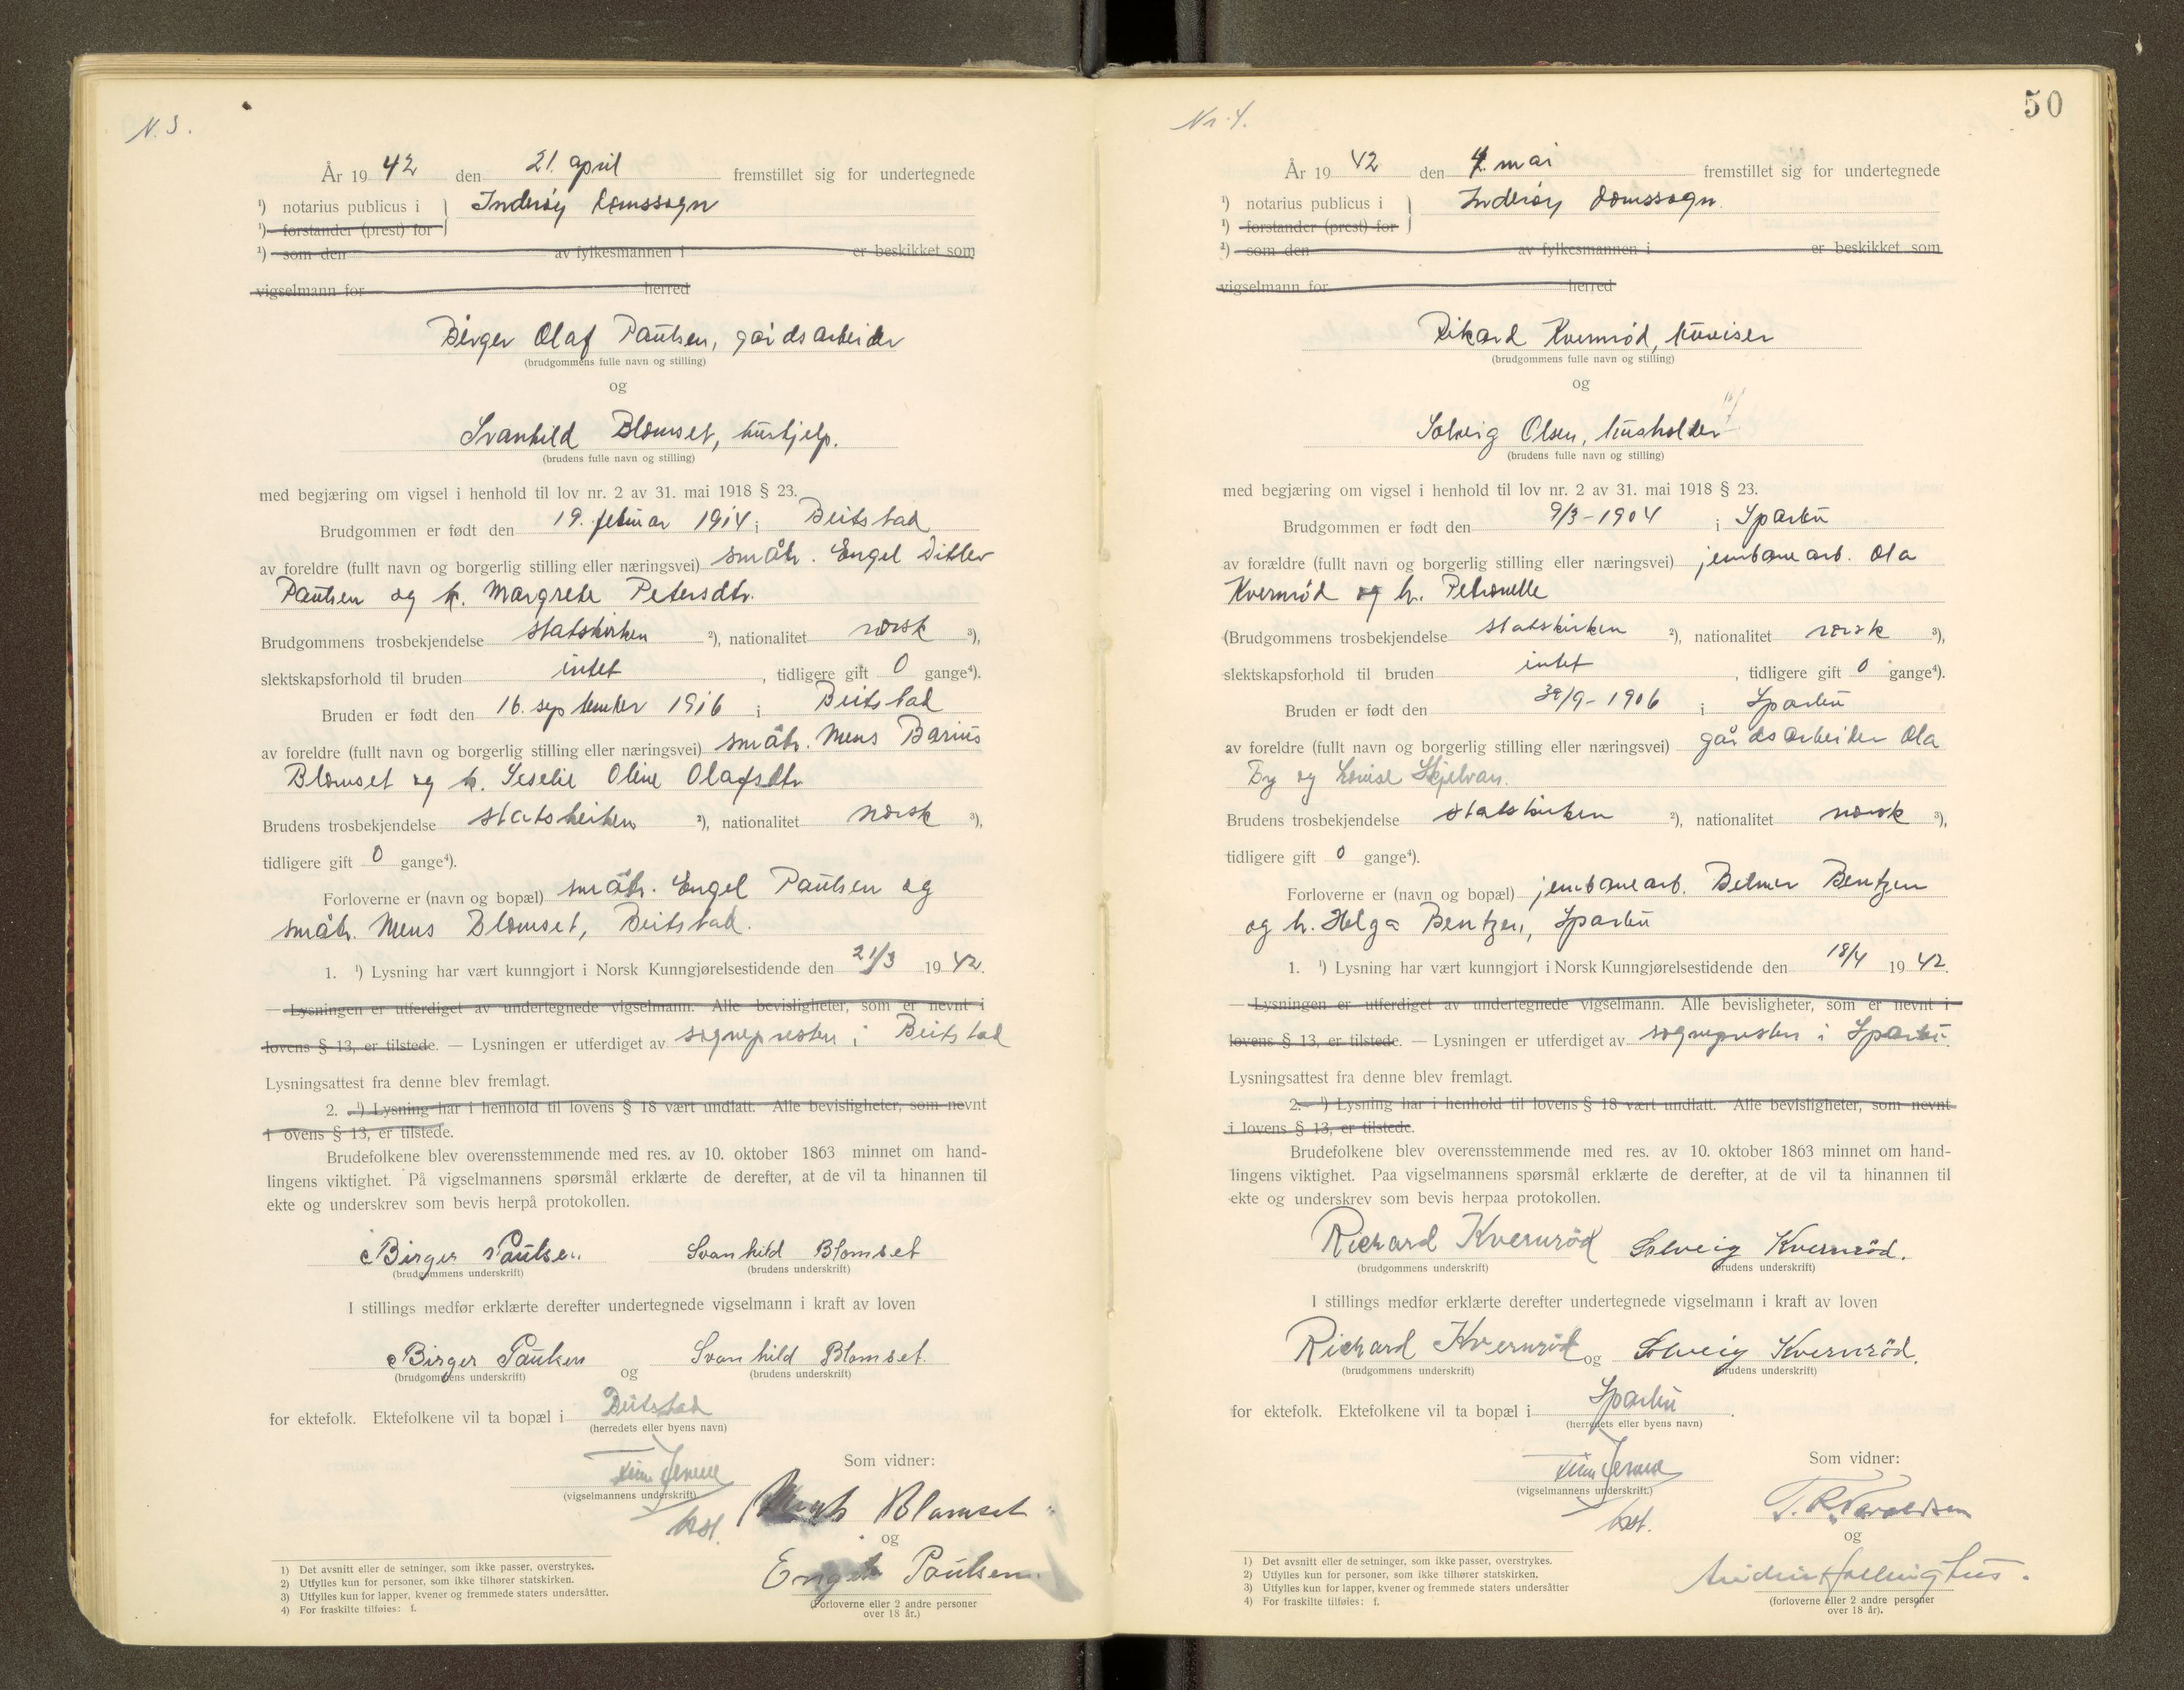 N. 3.
År 19 42 den 21. april fremstillet sig for undertegnede
¹) notarius publicus i } Inderøy domssogn
¹) forstander (prest) for
²) som den av fylkesmannen i er beskikket som
vigselmann for herred
Birger Olaf Paulsen, gårdsarbeider
(brudgommens fulle navn og stilling)
og
Svanhild Blomset, hushjelp.
(brudens fulle navn og stilling)
med begjæring om vigsel i henhold til lov nr. 2 av 31. mai 1918 § 23.
Brudgommen er født den 19. februar 1914 i Beitstad
av foreldre (fullt navn og borgerlig stilling eller næringsvei) småbr. Engel Ditlev
Paulsen og h. Margrete Petersdtr.
Brudgommens trosbekjendelse statskirken ²), nationalitet norsk ³),
slektskapsforhold til bruden intet, tidligere gift 0 gange⁴).
Bruden er født den 16. september 1916 i Beitstad
av foreldre (fullt navn og borgerlig stilling eller næringsvei) småbr. Mens Barius
Blomset og h. Seselie Oline Olafsdtr
Brudens trosbekjendelse statskirken ²), nationalitet norsk ³),
tidligere gift 0 gange⁴).
Forloverne er (navn og bopæl) småbr. Engel Paulsen og
småbr. Mens Blomset, Beitstad.
1. ¹) Lysning har vært kunngjort i Norsk Kunngjørelsestidende den 21/3 1942.
— Lysningen er utferdiget av undertegnede vigselmann. Alle bevisligheter, som er nevnt i
lovens § 13, er tilstede. — Lysningen er utferdiget av sognepresten i Beitstad
Lysningsattest fra denne blev fremlagt.
2. ¹) Lysning har i henhold til lovens § 18 vært undlatt. Alle bevisligheter, som nevnt
i ovens § 13, er tilstede.
Brudefolkene blev overensstemmende med res. av 10. oktober 1863 minnet om hand-
lingens viktighet. På vigselmannens spørsmål erklærte de derefter, at de vil ta hinannen til
ekte og underskrev som bevis herpå protokollen.
Birger Paulsen. Svanhild Blomset
(brudgommens underskrift) (brudens underskrift)
I stillings medfør erklærte derefter undertegnede vigselmann i kraft av loven
Birger Paulsen og Svanhild Blomset.
(brudgommens underskrift) (brudens underskrift)
for ektefolk. Ektefolkene vil ta bopæl i Beitstad
(herredets eller byens navn)
Som vidner:
(vigselmannens underskrift)
kst. Blomset
og
Engel Paulsen.
(Forloverne eller 2 andre personer
over 18 år.)
1) Det avsnitt eller de setninger, som ikke passer, overstrykes.
2) Utfylles kun for personer, som ikke tilhører statskirken.
3) Utfylles kun for lapper, kvener og fremmede staters undersåtter.
4) For fraskilte tilføies: f.
50
Nr. 4.
År 19 42 den 4. mai fremstillet sig for undertegnede
¹) notarius publicus i } Inderøy domssogn.
¹) forstander (prest) for
²) som den av fylkesmannen i er beskikket som
vigselmann for herred
Rikard Kvernrød,
(brudgommens fulle navn og stilling)
og
Solveig Olsen, husholder
(brudens fulle navn og stilling)
med begjæring om vigsel i henhold til lov nr. 2 av 31. mai 1918 § 23.
Brudgommen er født den 9/3-1904 i Sparbu
av forældre (fullt navn og borgerlig stilling eller næringsvei) jernbanearb. Ola
Kvernrød og h. Petronelle
(Brudgommens trosbekjendelse statskirken ²), nationalitet norsk ³),
slektskapsforhold til bruden intet, tidligere gift 0 gange⁴).
Bruden er født den 30/9-1906 i Sparbu
av foreldre (fullt navn og borgerlig stilling eller næringsvei) gårdsarbeider Ola
By og Lovise Skjelvan.
Brudens trosbekjendelse statskirken ²), nationalitet norsk ³),
tidligere gift 0 gange⁴).
Forloverne er (navn og bopæl) jernbanearb. Belmer Bentzen
og h. Helga Bentzen, Sparbu
1. ¹) Lysning har vært kunngjort i Norsk Kunngjørelsestidende den 18/4 1942.
— Lysningen er utferdiget av undertegnede vigselmann. Alle bevisligheter, som er nevnt i
lovens § 13, er tilstede. — Lysningen er utferdiget av sognepresten i Sparbu.
Lysningsattest fra denne blev fremlagt.
2. ¹) Lysning har i henhold til lovens § 18 vært undlatt. Alle bevisligheter, som nevnt
i lovens § 13, er tilstede.
Brudefolkene blev overensstemmende med res. av 10. oktober 1863 minnet om hand-
lingens viktighet. Paa vigselmannens spørsmål erklærte de derefter, at de vil ta hinannen til
ekte og underskrev som bevis herpaa protokollen.
Richard Kvernrød Solveig Kvernrød.
(brudgommens underskrift) (brudens underskrift)
I stillings medfør erklærte derefter undertegnede vigselmann i kraft av loven
Richard Kvernrød og Solveig Kvernrød.
(brudgommens underskrift) (brudens underskrift)
for ektefolk. Ektefolkene vil ta bopæl i Sparbu.
(herredets eller byens navn)
Som vidner:
(vigselmannens underskrift.)
kst.
og
(forloverne eller 2 andre personer
over 18 år).
1) Det avsnitt eller de setninger, som ikke passer, overstrykes.
2) Utfylles kun for personer, som ikke tilhører statskirken.
3) Utfylles kun for lapper, kvener og fremmede staters undersåtter
4) For fraskilte tilføies: f.